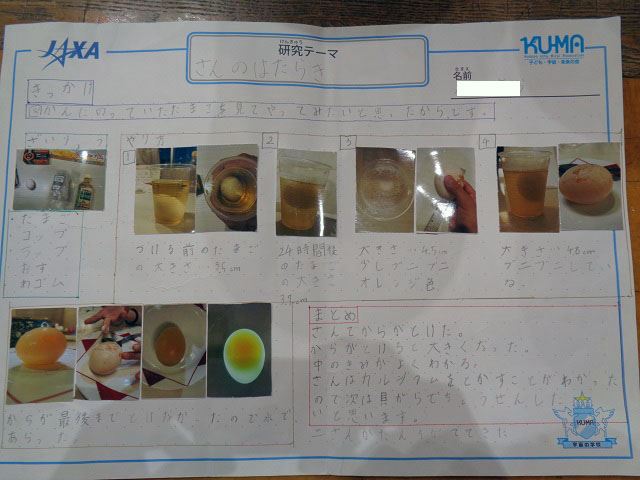 JAXA
けんきゅう
研究テーマ
さんのはたらき
KU-MA
子ども・宇宙・未来の会
なまえ
名前
きっかけ
図かんにのっていたたまごを見てやってみたいと思ったからです。
ざいりょう
たまご
コップ
ラップ
おす
わゴム
やり方
1
つける前のたまご
の大きさ
2
24時間後
のたまご
の大きさ
3
大きさ
少しプニプニ
オレンジ色
4
大きさ
プニプニしてい
る。
からが最後までとけなかったので水で
あらった
まとめ
さんでからがとけた。
からがとけると大きくなった。
中のきみがよくわかる。
さんはカルシウムをとかすことがわかった
ので次は
いと思います。
KU-MA
宇宙の学校